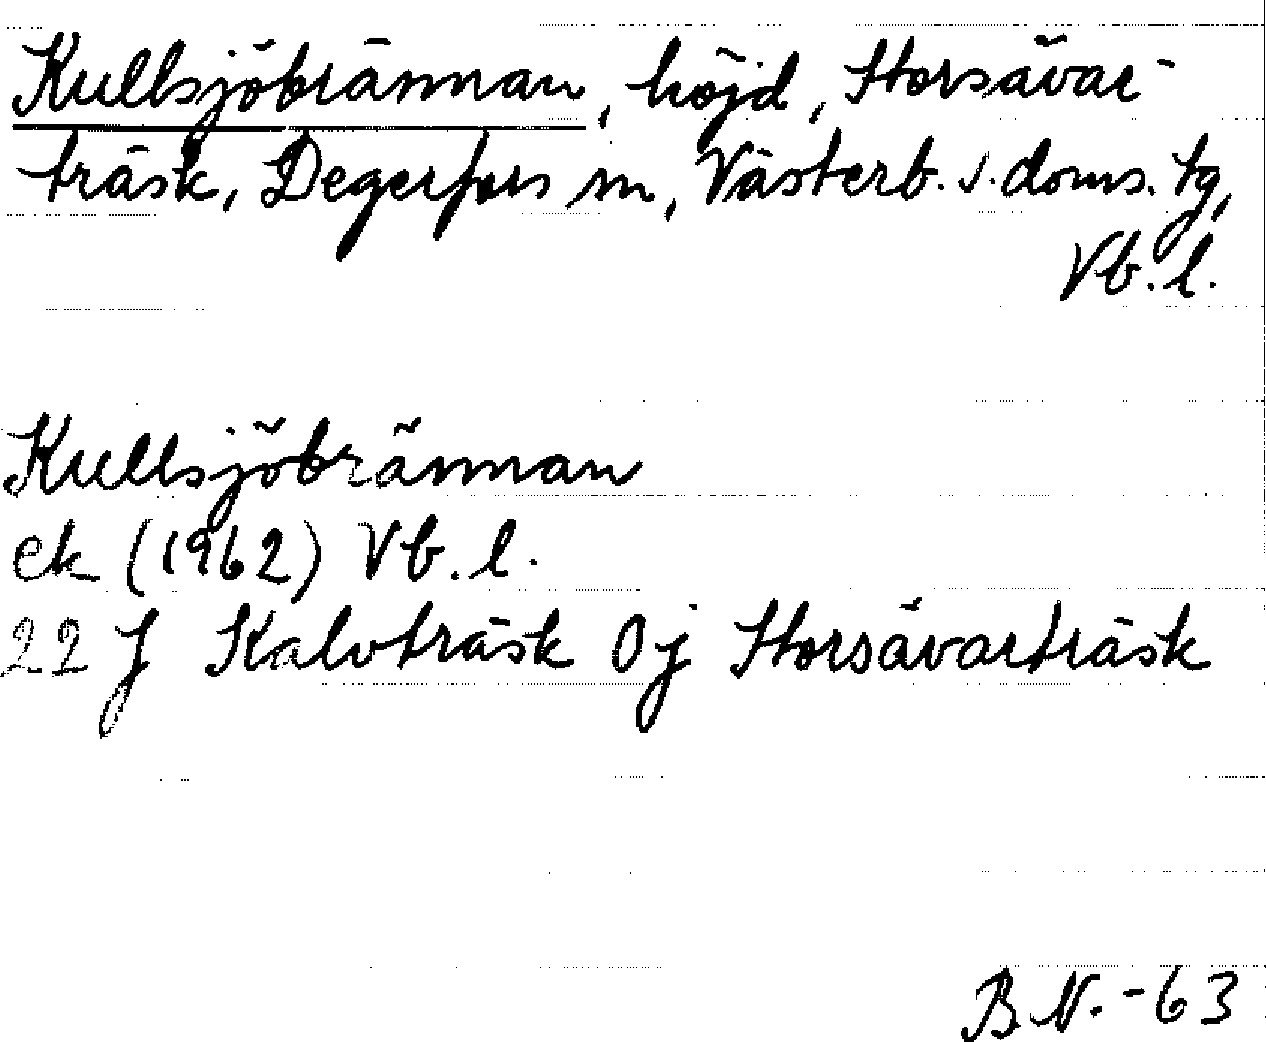 Kullsjöbrännan, höjd, Storsävar-
träsk, Degerfors sn, Västerb. s. doms. tg,
Vb. l.
Kullsjöbrännan
ek (1962) Vb. l.
22 J Kalvträsk 0j Storsävarträsk
B.N. -63